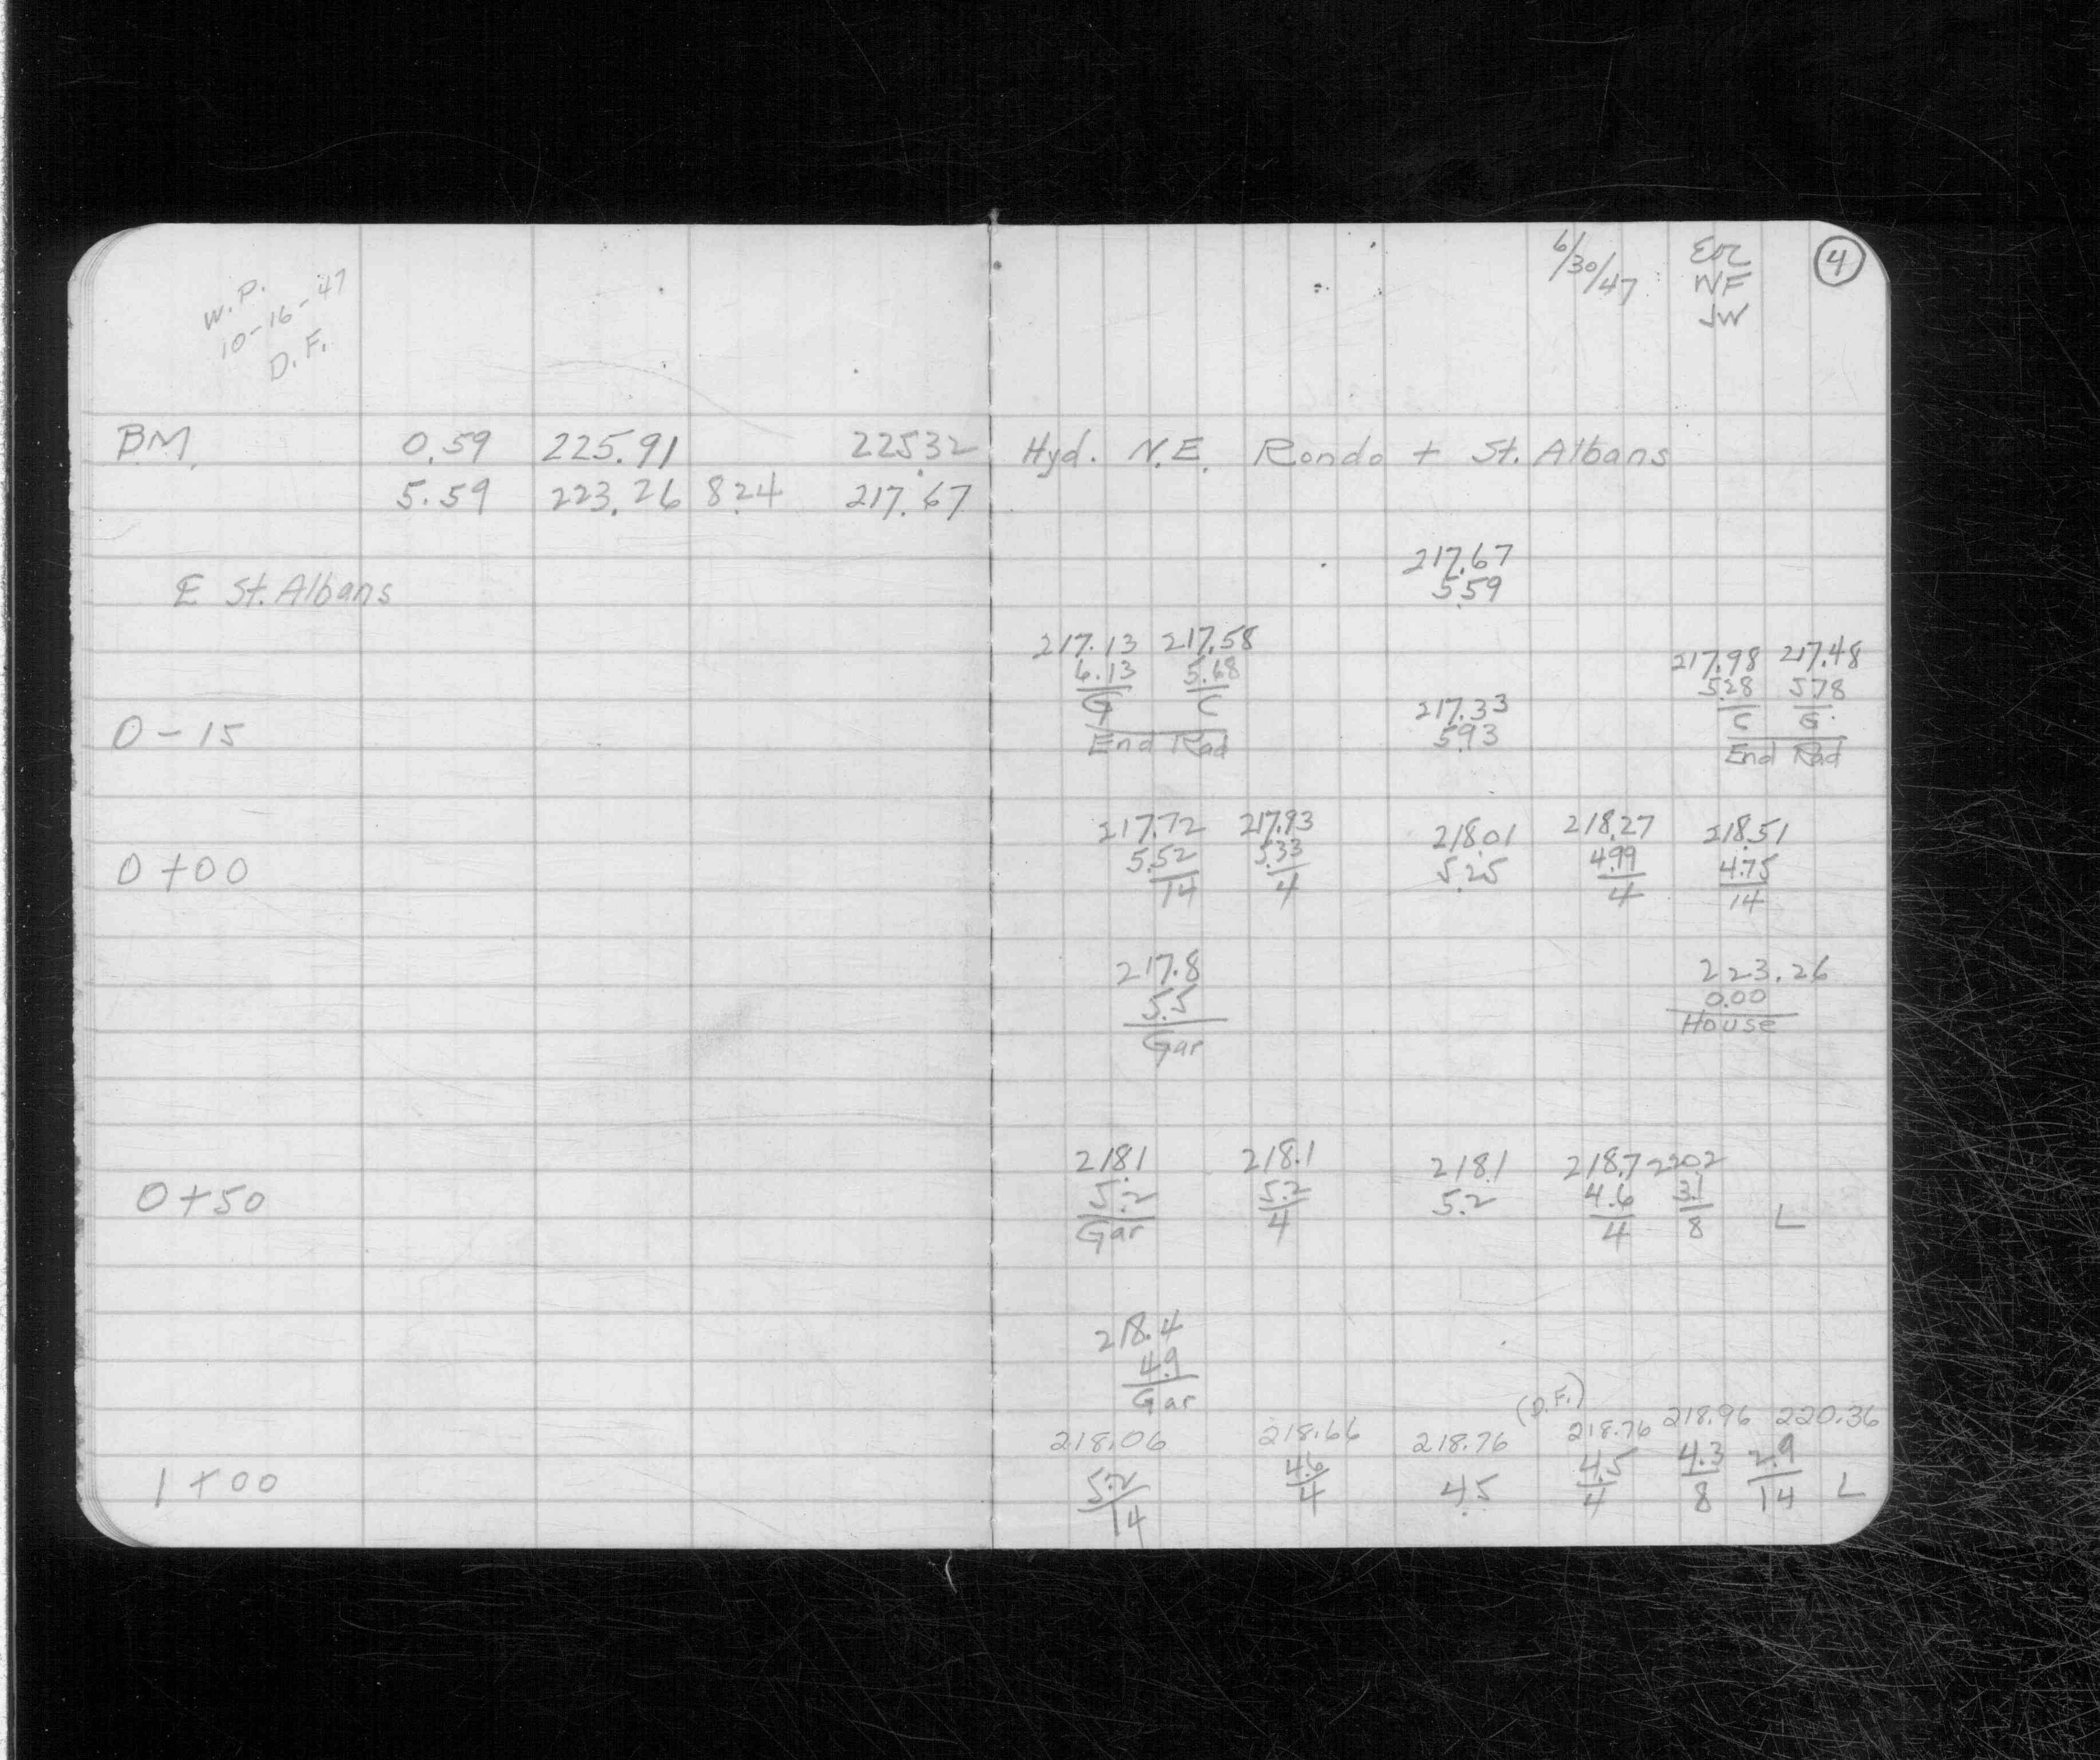 W.P.
10-16-47
D.F.
6/30/47
WF
JW
4
BM. 0.59 225.91 225.32 Hyd. N.E. Rondo + St. Albans
5.59 223.26 8.24 217.67
217.67
5.59
E St. Albans
217.13 217.58 217.98 217.48
6.13 5.68 5.28 5.78
G C 217.33 C G.
0-15 End Rad 5.93 End Rad
217.72 217.93 218.01 218.27 218.51
0+00 5.52 5.33 5.25 4.99 4.75
14 4 4 14
217.8 223.26
5.5 0.00
Gar House
218.1 218.1 218.1 218.7 220.2
0+50 5.2 5.2 5.2 4.6 3.1
Gar 4 4 8 L
218.4
4.9
Gar
(D.F.)
218.06 218.66 218.76 218.76 218.96 220.36
1+00 5.2 4.6 4.5 4.5 4.3 2.9
14 4 4 8 14 L